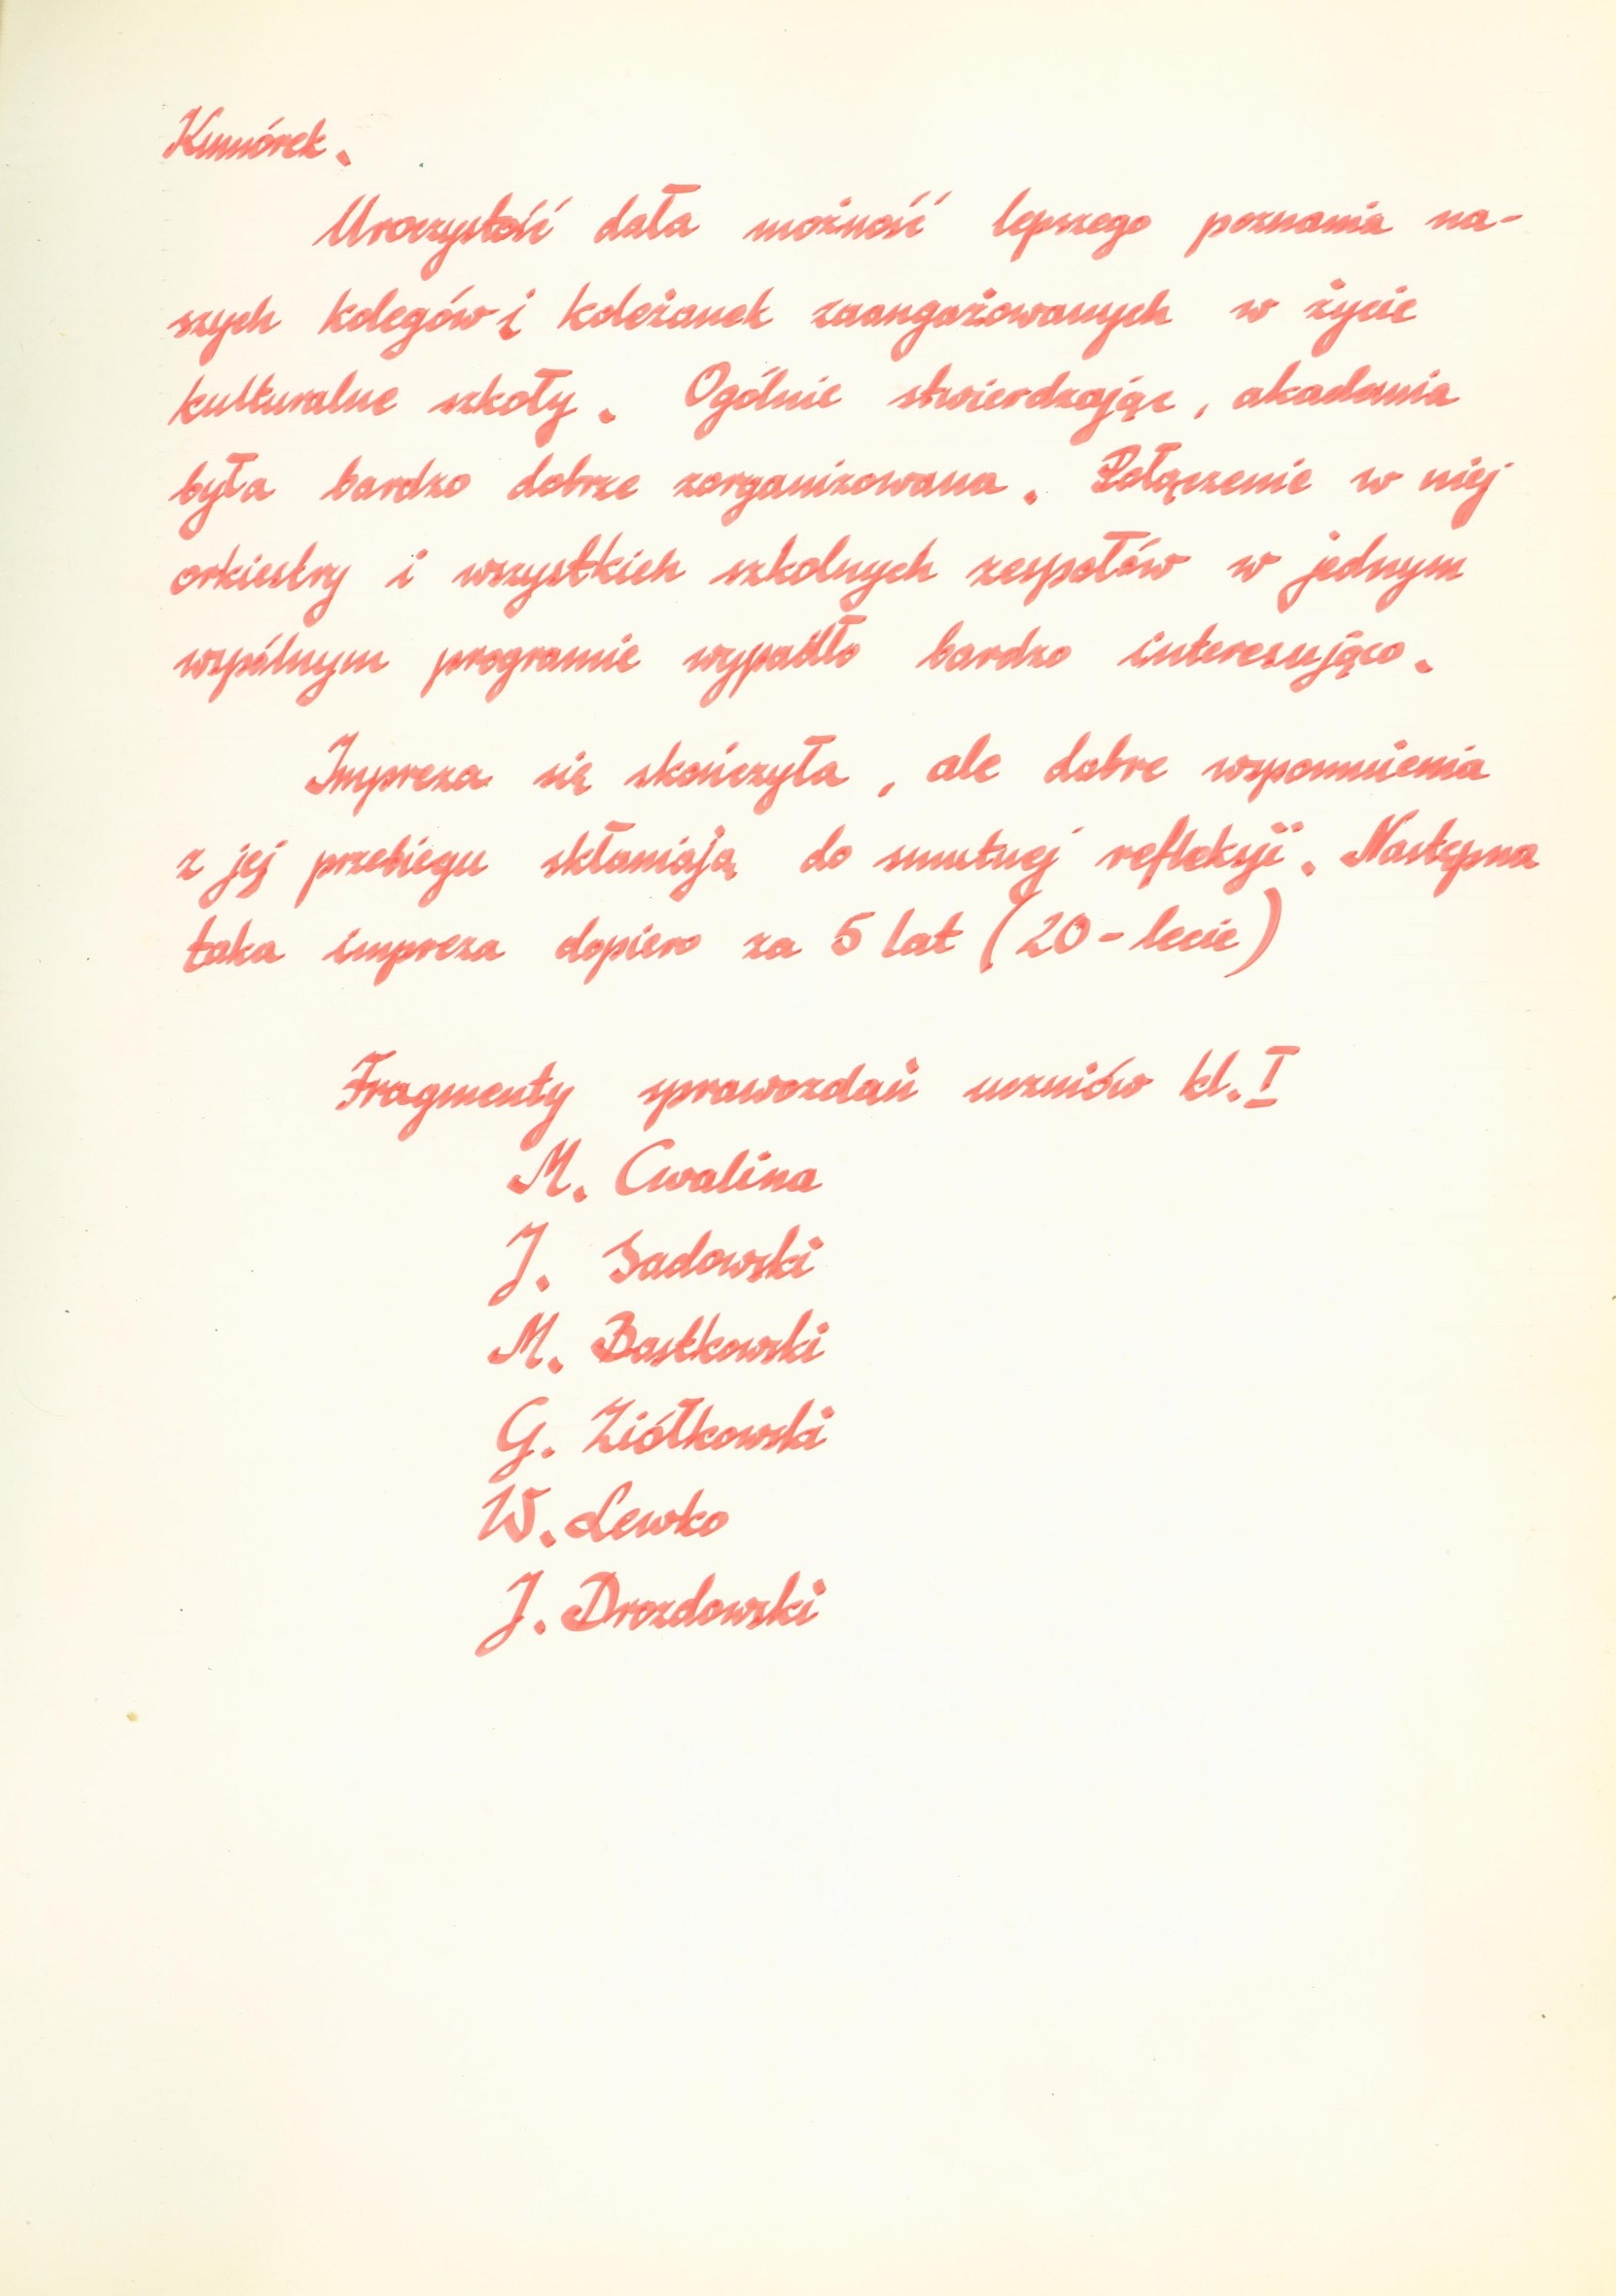 Kumórek.
Uroczystość dała możność lepszego poznania na-
szych kolegów i koleżanek zaangażowanych w życie
kulturalne szkoły. Ogólnie stwierdzając, akademia
była bardzo dobrze zorganizowana. Połączenie w niej
orkiestry i wszystkich szkolnych zespołów w jednym
wspólnym programie wypadło bardzo interesująco.
Impreza się skończyła, ale dobre wspomnienia
z jej przebiegu skłaniają do smutnej refleksji. Następna
taka impreza dopiero za 5 lat (20-lecie)
Fragmenty sprawozdań uczniów kl. I
M. Cwalina
J. Sadowski
M. Bastkowski
G. Ziółkowski
W. Lewko
J. Drozdowski